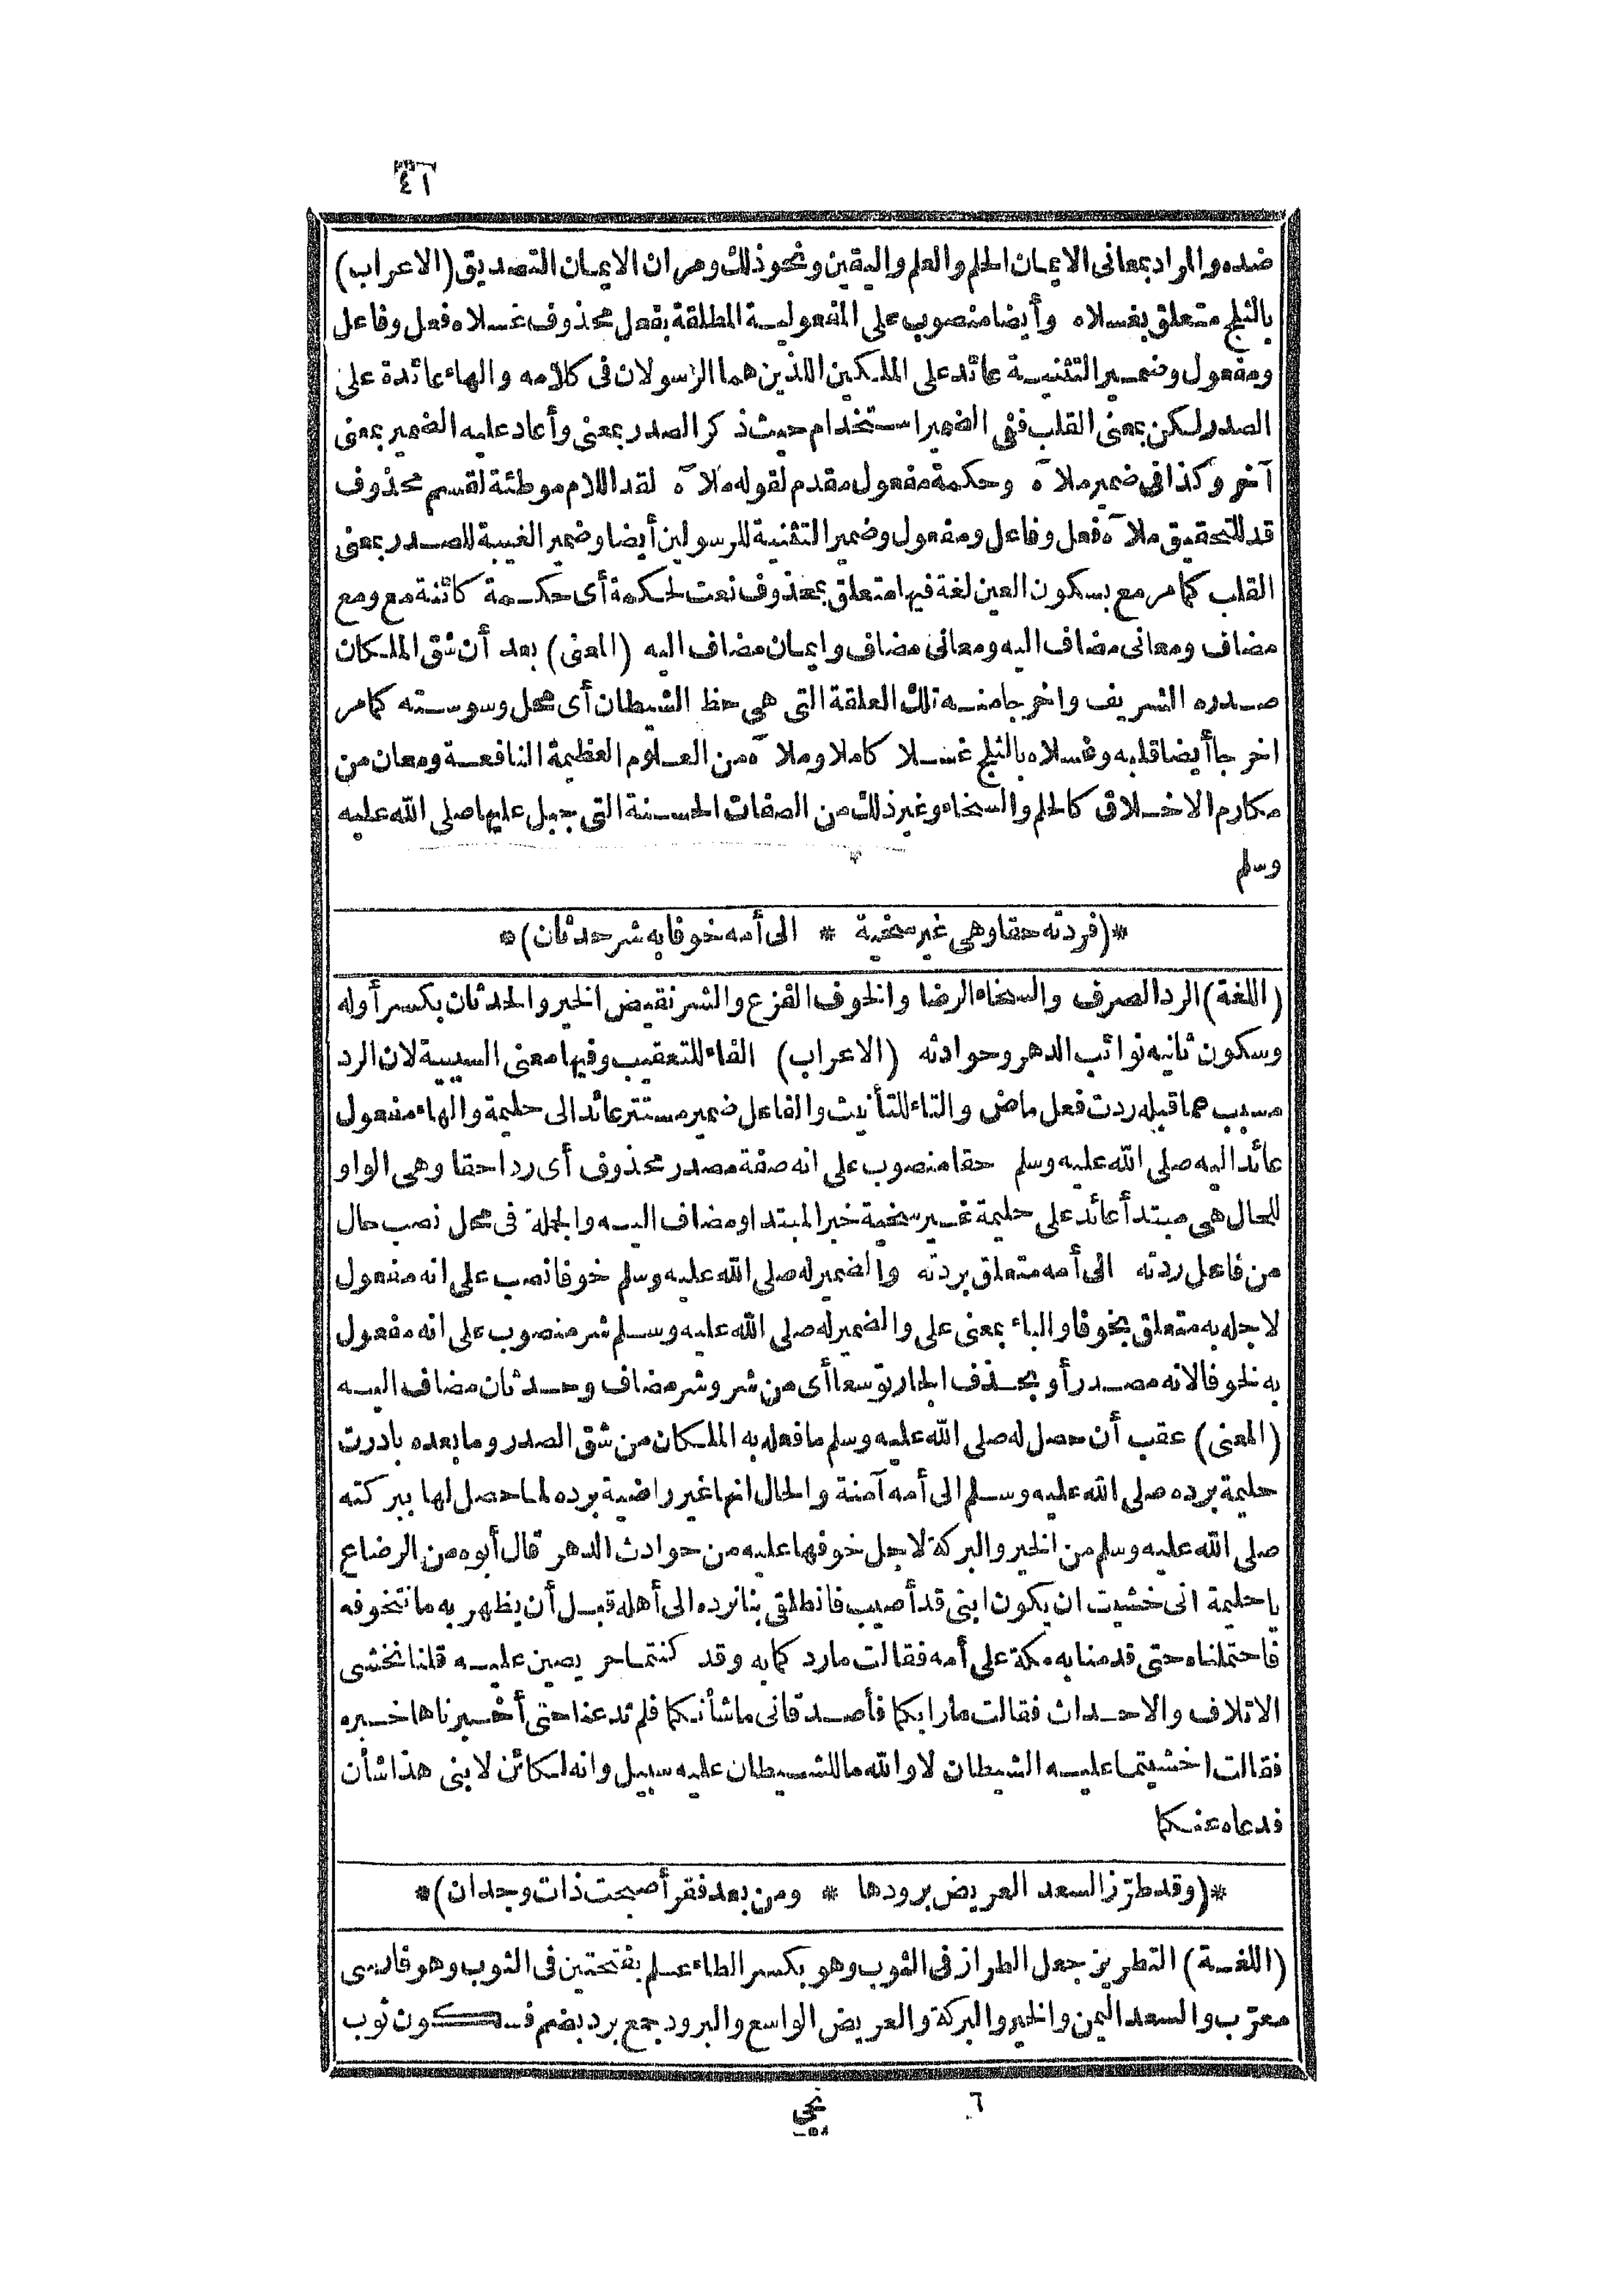 ٤١
ضده والمراد بمعانى الايمان الحلم والعلم واليقين ونحو ذلك ومر ان الايمان التصديق (الاعراب)
بالثلج متعلق بغسلاه وأيضا منصوب على المفعولية المطلقة بفعل محذوف غسلاه فعل وفاعل
ومفعول وضمير التثنية عائد على الملكين اللذين هما الرسولان فى كلامه والهاء عائدة على
الصدر لكن بمعنى القلب ففى الضمير استخدام حيث ذكر الصدر بمعنى وأعاد عليه الضمير بمعنى
آخر وكذا فى ضمير ملآه وحكمة مفعول مقدم لقوله ملآه لقد اللام موطئة لقسم محذوف
قد للتحقيق ملآه فعل وفاعل ومفعول وضمير التثنية للرسولين أيضا وضمير الغيبة للصدر بمعنى
القلب كما مر مع بسكون العين لغة فيها متعلق بمحذوف نعت لحكمة أى حكمة كائنة مع ومع
مضاف ومعانى مضاف اليه ومعانى مضاف وايمان مضاف اليه (المعنى) بعد أن شق الملكان
صدره الشريف واخرجا منه تلك العلقة التى هى حظ الشيطان أى محل وسوسته كما مر
اخرجا أيضا قلبه وغسلاه بالثلج غسلا كاملا وملآه من العلوم العظيمة النافعة ومعان من
مكارم الاخلاق كالحلم والسخاء وغير ذلك من الصفات الحسنة التى جبل عليها صلى الله عليه
وسلم
*(فردته حقا وهى غير سخية * الى أمه خوفا به شر حدثان)*
(اللغة) الرد الصرف والسخاء الرضا والخوف الفزع والشر نقيض الخير والحدثان بكسر أوله
وسكون ثانيه نوائب الدهر وحوادثه (الاعراب) الفاء للتعقيب وفيها معنى السببية لان الرد
مسبب عما قبله ردت فعل ماض والتاء للتأنيث والفاعل ضمير مستتر عائد الى حليمة والهاء مفعول
عائد اليه صلى الله عليه وسلم حقا منصوب على انه صفة مصدر محذوف أى ردا حقا وهى الواو
للحال هى مبتدأ عائد على حليمة غير سخية خبر المبتدا ومضاف اليه والجملة فى محل نصب حال
من فاعل ردته الى أمه متعلق بردته والضمير له صلى الله عليه وسلم خوفا نصب على انه مفعول
لاجله به متعلق بخوفا والباء بمعنى على والضمير له صلى الله عليه وسلم شر منصوب على انه مفعول
به لخوفا لانه مصدر أو بحذف الجار توسعا أى من شر وشر مضاف وحدثان مضاف اليه
(المعنى) عقب أن حصل له صلى الله عليه وسلم ما فعله به الملكان من شق الصدر وما بعده بادرت
حليمة برده صلى الله عليه وسلم الى أمه آمنة والحال انها غير راضية برده لما حصل لها ببركته
صلى الله عليه وسلم من الخير والبركة لاجل خوفها عليه من حوادث الدهر قال أبوه من الرضاع
يا حليمة انى خشيت ان يكون ابنى قد أصيب فانطلقى بنا نرده الى أهله قبل أن يظهر به ما نتخوفه
فاحتملناه حتى قدمنا به مكة على أمه فقالت ما رد كما به وقد كنتما حريصين عليه قلنا نخشى
الاتلاف والاحداث فقالت ما رابكما فأصدقانى ما شأنكما فلم تدعنا حتى أخبرناها خبره
فقالت اخشيتما عليه الشيطان لا والله ما للشيطان عليه سبيل وانه لكائن لابنى هذا شأن
فدعاه عنكما
*(وقد طرّز السعد العريض برودها * ومن بعد فقر أصبحت ذات وجدان)*
(اللغة) التطريز جعل الطراز فى الثوب وهو بكسر الطاء علم بفتحتين فى الثوب وهو فارسى
معرّب والسعد اليمن والخير والبركة والعريض الواسع والبرود جمع برد بضم فسكون ثوب
٦